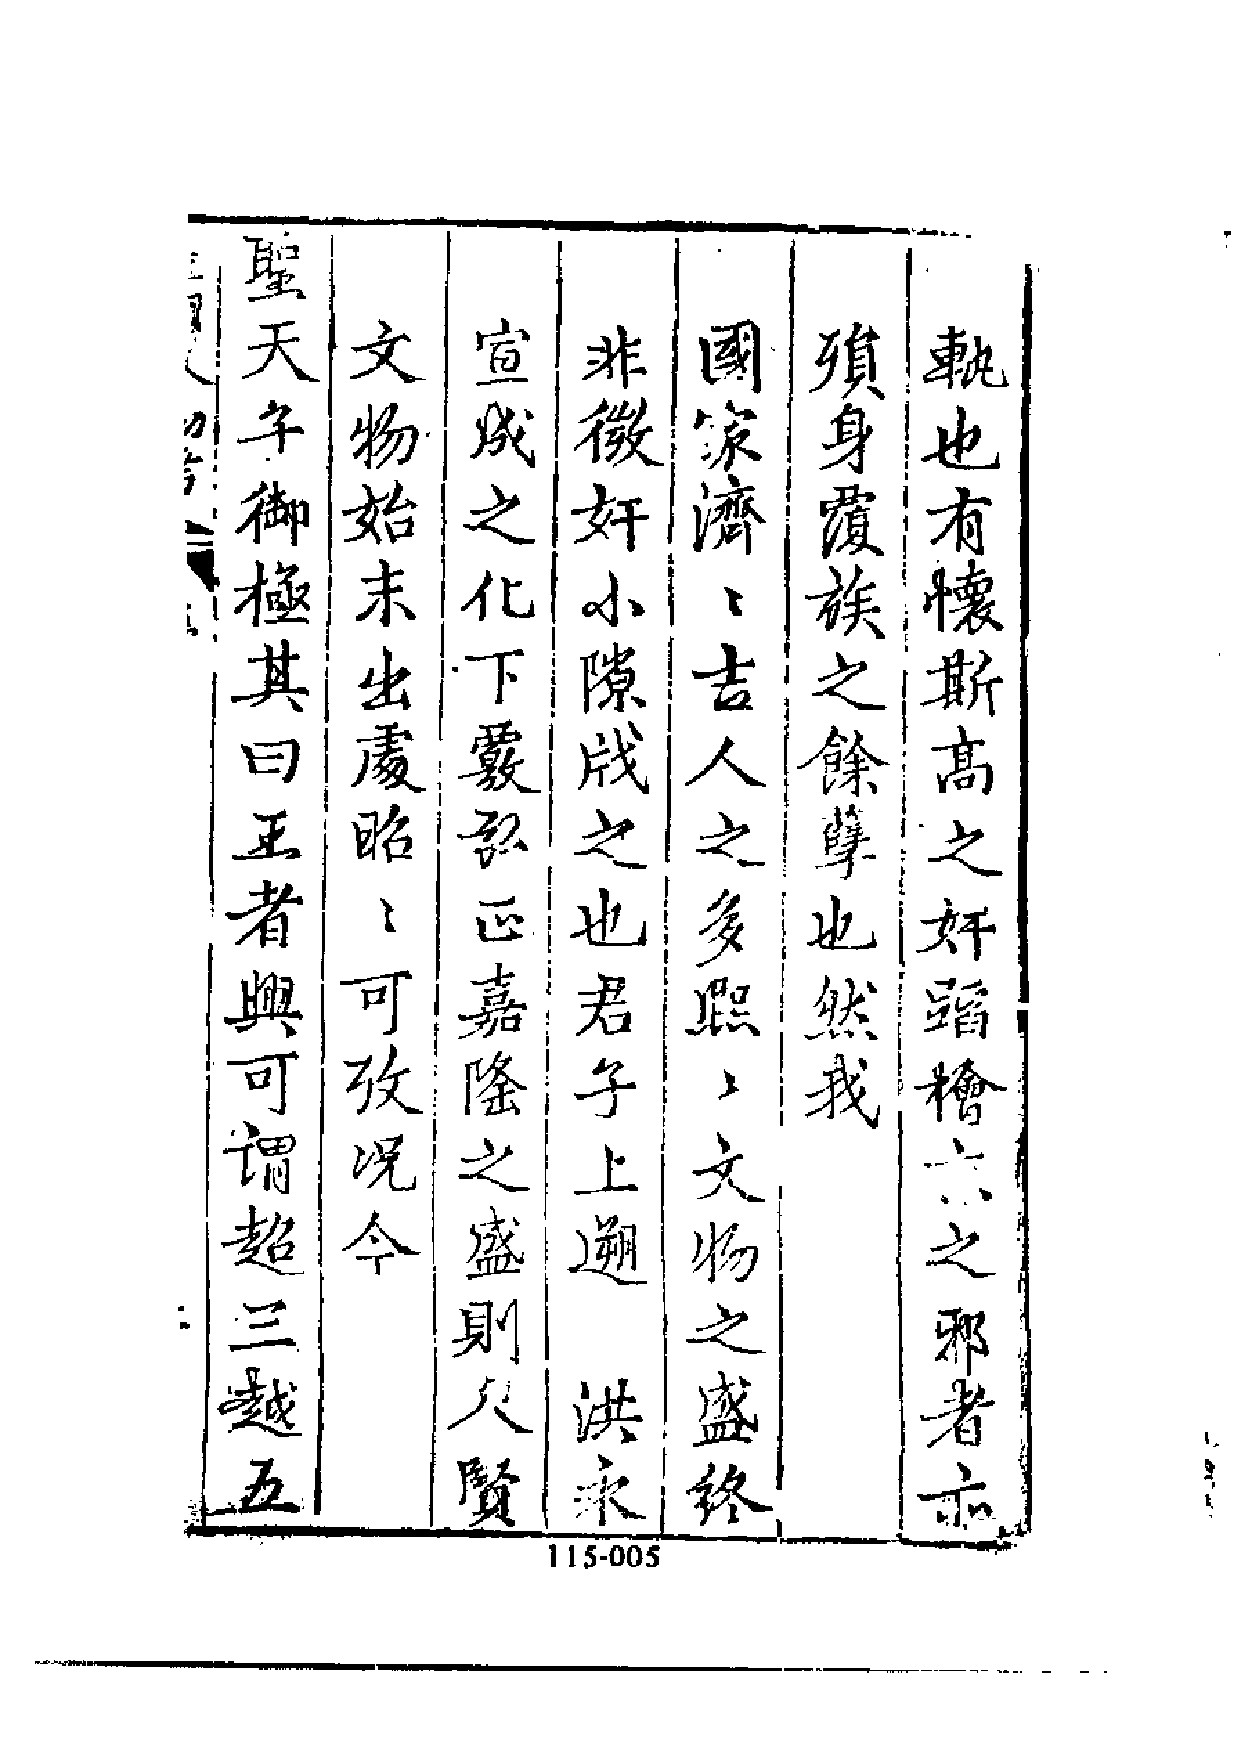 執也有懷斯高之奸蹈檜六之邪者亦
殞身覆族之餘孽也然我
國家濟〻吉人之多熙〻文物之盛終
非微奸小隙戕之也君子上遡　洪永
宣成之化下覈弘正嘉隆之盛則人賢
文物始末出處昭〻可攷况今
聖天子御極其曰王者興可謂超三越五
115-005